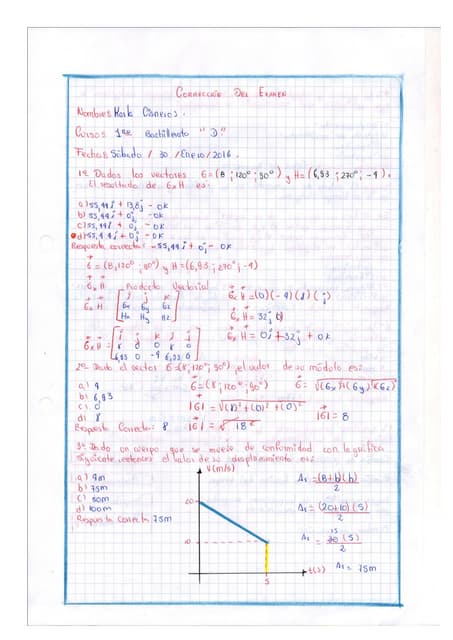 Corrección Del Examen
Nombre: Karla Cisneros.
Curso: 1ero Bachillerato "D"
Fecha: Sábado / 30 / Enero / 2016.
1º Dados los vectores G = (8 ; 120º ; 90º) y H = (6,93 ; 270º ; -4).
El resultado de G x H es:
b) 55,44i + 0j - 0k
c) 55,44i + 0j - 0k
Respuesta correcta: -55,44i + 0j - 0k
G = (8, 120º ; 90º) y H = (6,93 ; 270º ; -4)
G x H Producto Vectorial
G x H [ i j k
Gx Gy Gz
Hx Hy Hz ]
G x H = (0)(-4)(8)(j)
G x H = 32j
G x H = 0i + 32j + 0k
2º Dado el vector G = (8, 120º ; 90º), el valor de su módulo es:
a) 4
b) 6,93
c) 0
d) 8
Respuesta Correcta: 8
G = (8 ; 120º ; 90º)
|G| = √(8)² + (0)² + (0)²
|G| = √ 18²
|G| = 8
3º Dado un cuerpo que se mueve de conformidad con la gráfica
siguiente, entonces el valor de su desplazamiento es:
a) 9m
b) 75m
c) 50m
d) 100m
Respuesta correcta 75m
V (m/s)
20
10
5
t(s)
A1 = (B+b)(h)
2
A1 = (20+10)(5)
2
15
A1 = 30 (5)
2
A1 = 75m